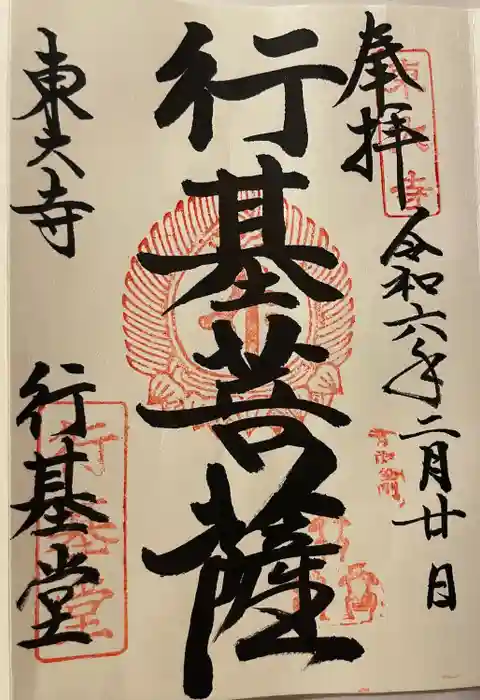 奉拝
令和六年二月廿日
行基菩薩
東大寺
行基堂
東大寺
行基堂